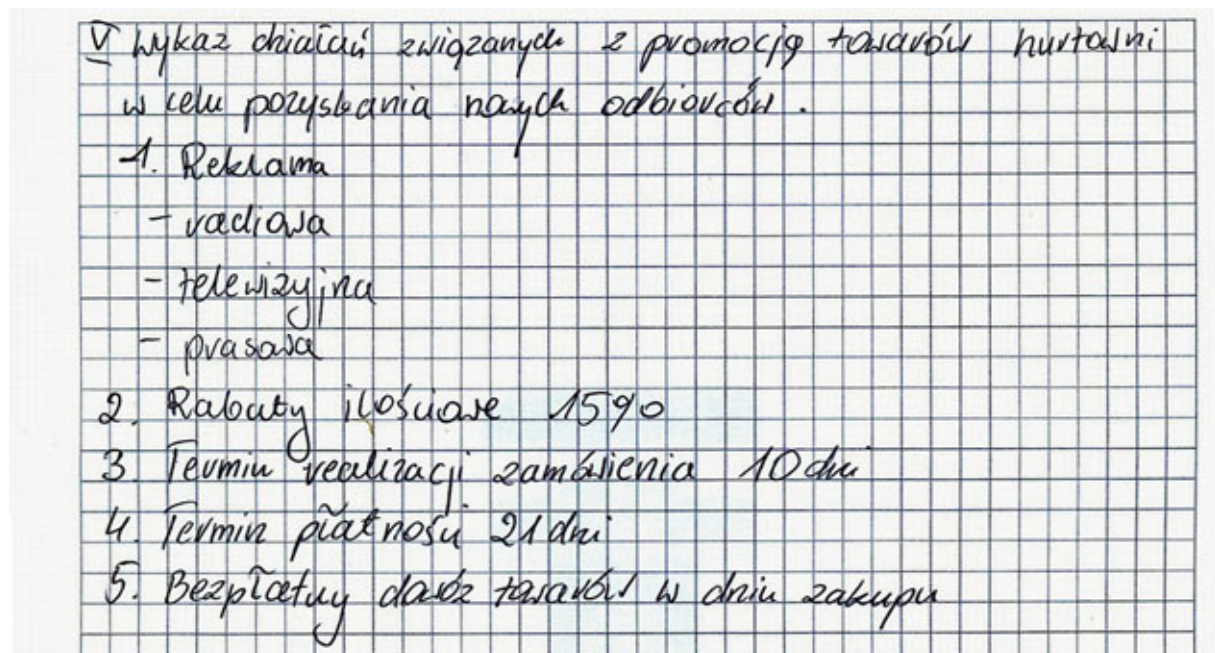 V Wykaz działań związanych z promocją towarów hurtowni
w celu pozyskania nowych odbiorców.
1. Reklama
- radiowa
- telewizyjna
- prasowa
2. Rabaty ilościowe 15%
3. Termin realizacji zamówienia 10 dni
4. Termin płatności 21 dni
5. Bezpłatny dowóz towarów w dniu zakupu